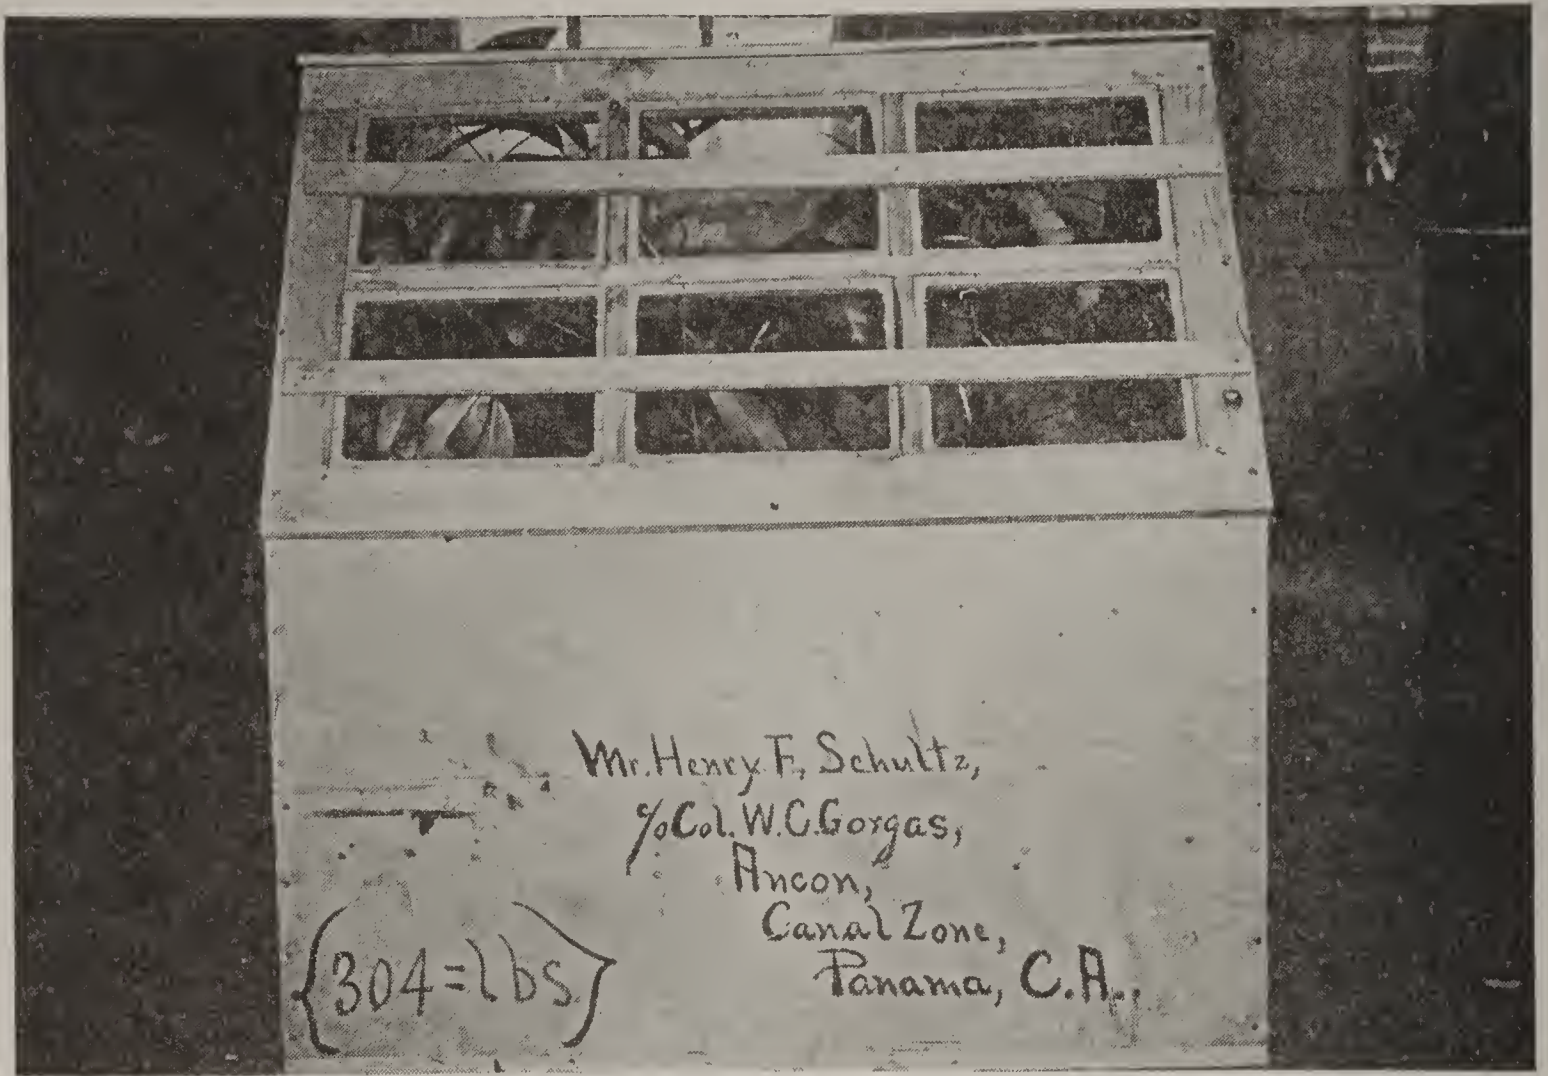 Mr. Henry F. Schultz,
c/o Col. W.C. Gorgas,
Ancon,
Canal Zone,
Panama, C.A.,
{304=lbs}